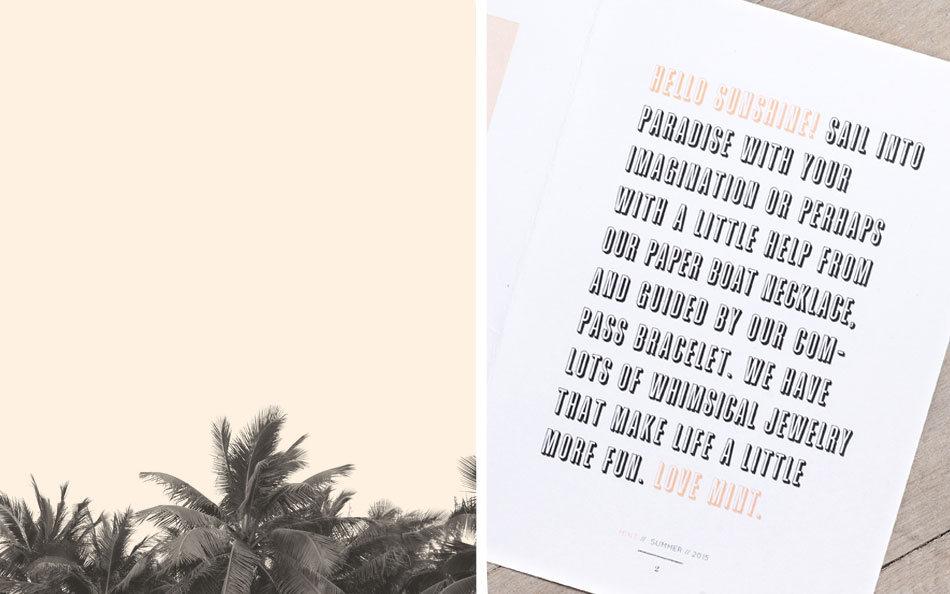 HELLO SUNSHINE! SAIL INTO
PARADISE WITH YOUR
IMAGINATION OR PERHAPS
WITH A LITTLE HELP FROM
OUR PAPER BOAT NECKLACE,
AND GUIDED BY OUR COM-
PASS BRACELET. WE HAVE
LOTS OF WHIMSICAL JEWELRY
THAT MAKE LIFE A LITTLE
MORE FUN. LOVE MINT.
MINT // SUMMER // 2015
2